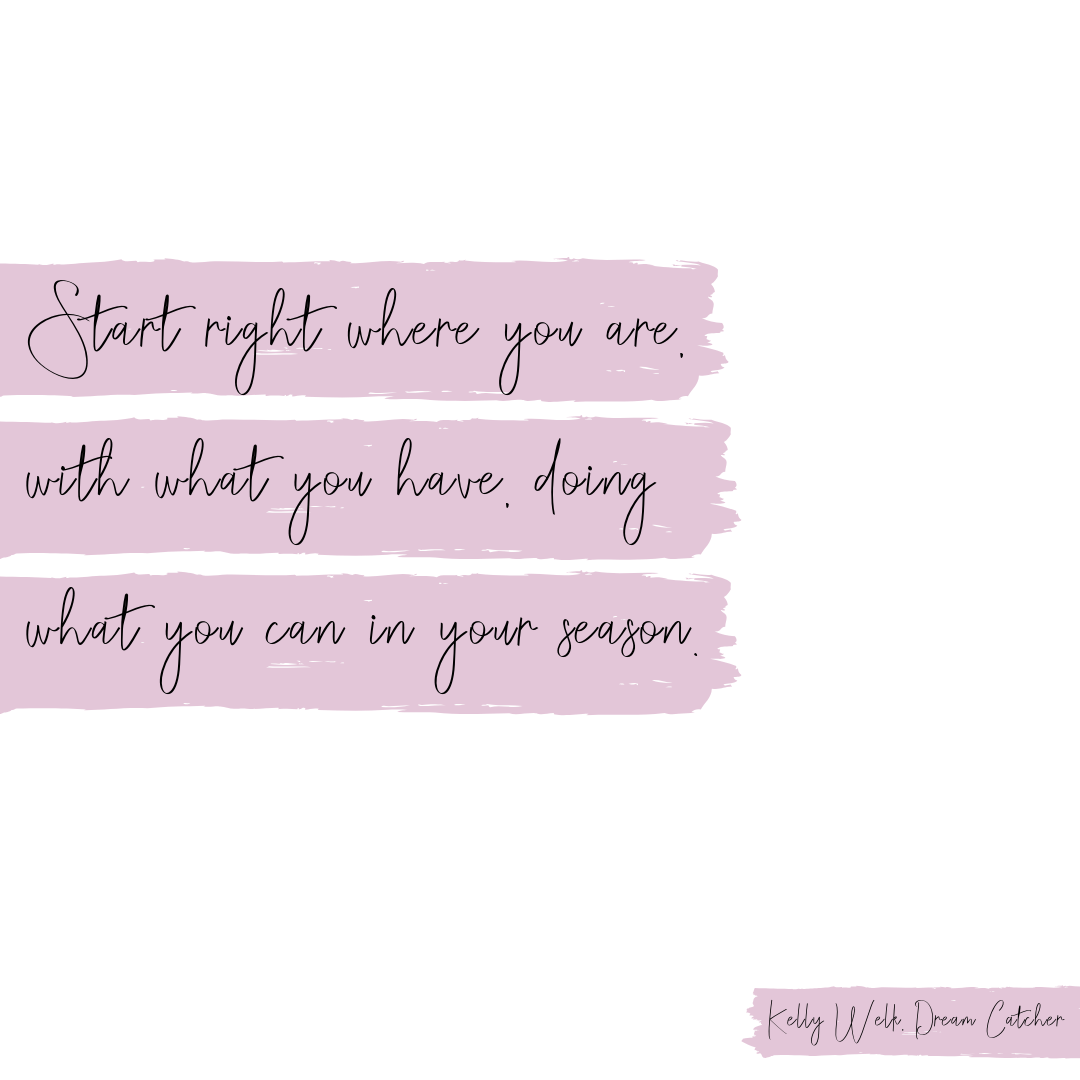 Start right where you are,
with what you have, doing
what you can in your season.
Kelly Welk, Dream Catcher